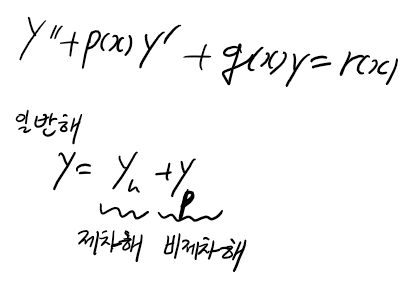 y''+p(x)y'+g(x)y=r(x)
일반해
y= y_h +y_p
제차해 비제차해